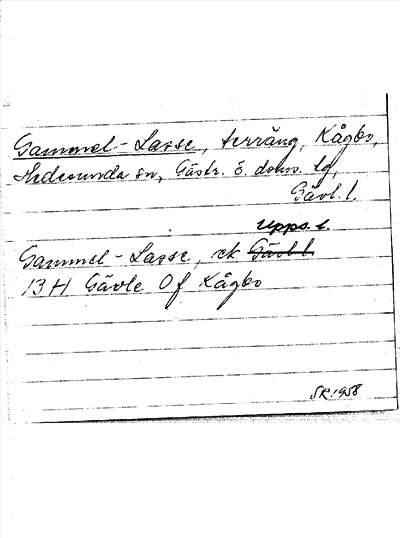 Gammel-Lasse, terräng, Kågbo,
Hedesunda sn, Gästr. ö. doms. lg,
Gävl. l.
Upps. l.
Gammel-Lasse, ek Gävl l
13 H Gävle 0 f Kågbo
SR 1958